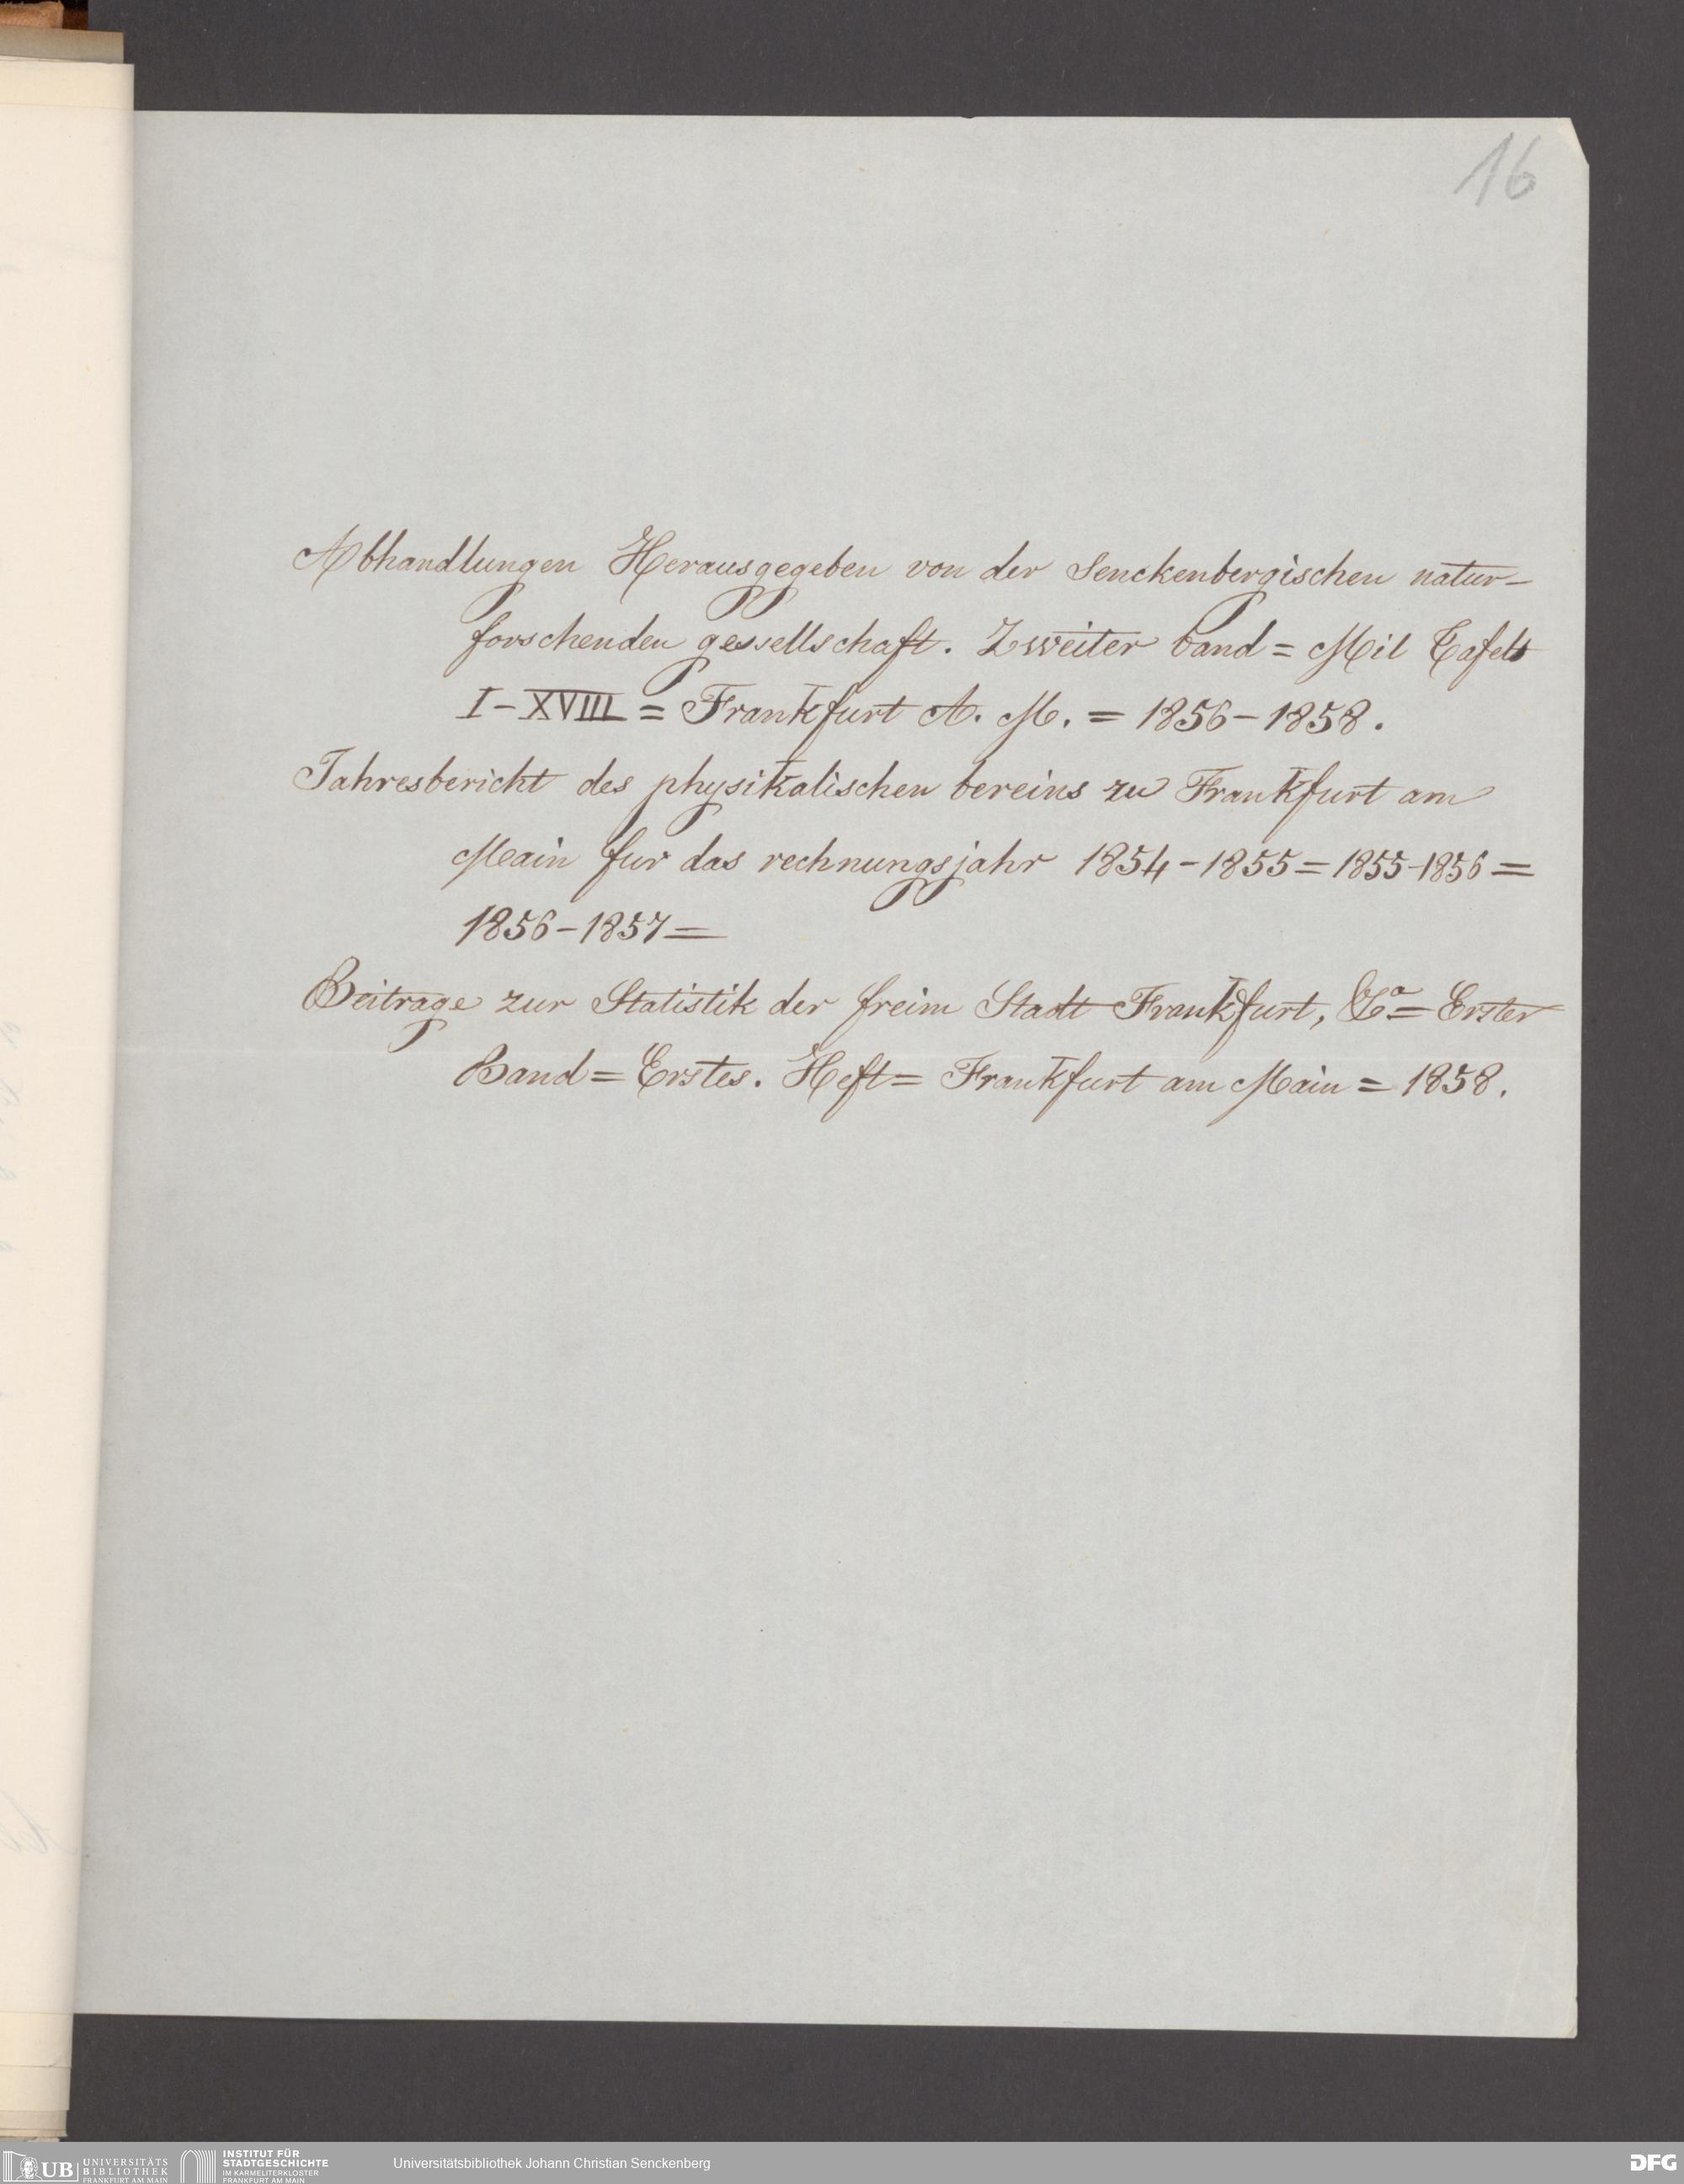 16
Abhandlungen Herausgegeben von der Senckenbergischen natur-
forschenden gessellschaft. Zweiter band = Mil Tafels
I-XVIII = Frankfurt A. M. = 1856-1858.
Jahresbericht des physikalischen bereins zu Frankfurt am
Main fur das rechnungsjahr 1854-1855 = 1855-1856 =
1856-1857 =
Beitrage zur Statistik der freim Stadt Frankfurt, &a = Erster
Band = Erstes. Heft = Frankfurt am Main = 1858.
UB UNIVERSITÄTS
BIBLIOTHEK
FRANKFURT AM MAIN
INSTITUT FÜR
STADTGESCHICHTE
IM KARMELITERKLOSTER
FRANKFURT AM MAIN
Universitätsbibliothek Johann Christian Senckenberg
DFG